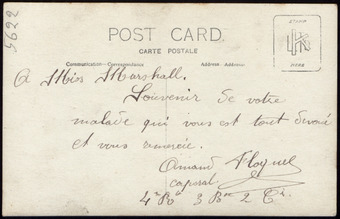 5622
POST CARD.
CARTE POSTALE
Communication - Correspondance
Address - Addresse
STAMP
HERE
A Miss Marshall.
Souvenir de votre
malade qui vous est tout dévoué
et vous remercie.
Armand Floquet
caporal
4e 3 2